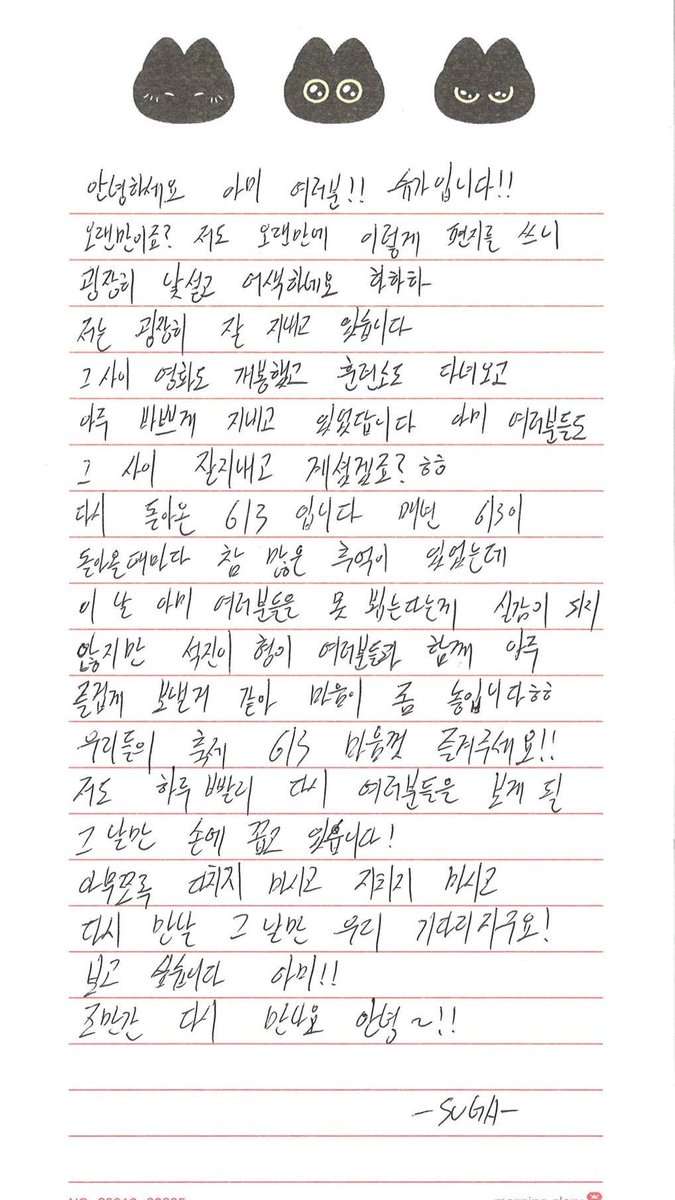 안녕하세요 아미 여러분!! 슈가입니다!!
오랜만이죠? 저도 오랜만에 이렇게 편지를 쓰니
굉장히 낯설고 어색하네요 하하하
저는 굉장히 잘 지내고 있습니다
그 사이 영화도 개봉했고 훈련소도 다녀오고
아주 바쁘게 지내고 있었답니다 아미 여러분들도
그 사이 잘지내고 계셨겠죠? ㅎㅎ
다시 돌아온 613 입니다 매년 613이
돌아올때마다 참 많은 추억이 있었는데
이 날 아미 여러분들을 못 뵙는다는게 실감이 되지
않지만 석진이 형이 여러분들과 함께 아주
즐겁게 보낼거 같아 마음이 좀 놓입니다ㅎㅎ
우리들의 축제 613 마음껏 즐겨주세요!!
저도 하루 빨리 다시 여러분들을 보게 될
그 날만 손에 꼽고 있습니다!
아무쪼록 다치지 마시고 지치지 마시고
다시 만날 그 날만 우리 기다리자구요!
보고 싶습니다 아미!!
조만간 다시 만나요 안녕~!!
-SUGA-